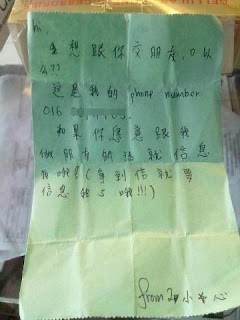 Hi,
我想跟你交朋友,可以
么??
这是我的 phone number
016
如果你愿意跟我
做朋友的话就信息
我哦!(拿到信就要
信息我 s 哦!!!)
from 小☆心